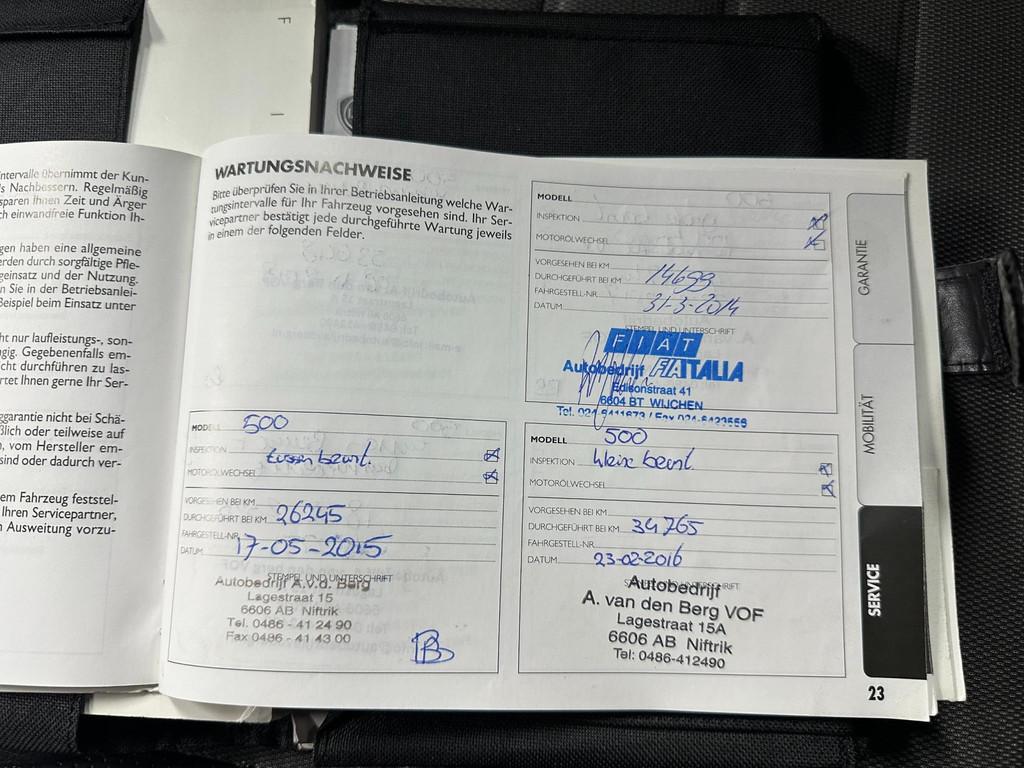 F
I
ntervalle übernimmt der Kun-
s Nachbessern. Regelmäßig
sparen Ihnen Zeit und Ärger
ch einwandfreie Funktion Ih-
gen haben eine allgemeine
erden durch sorgfältige Pfle-
geinsatz und der Nutzung.
n Sie in der Betriebsanlei-
Beispiel beim Einsatz unter
ht nur laufleistungs-, son-
gig. Gegebenenfalls em-
cht durchführen zu las-
rtet Ihnen gerne Ihr Ser-
ggarantie nicht bei Schä-
ßlich oder teilweise auf
n, vom Hersteller em-
sind oder dadurch ver-
em Fahrzeug feststel-
Ihren Servicepartner,
n Ausweitung vorzu-
WARTUNGSNACHWEISE
Bitte überprüfen Sie in Ihrer Betriebsanleitung welche War-
tungsintervalle für Ihr Fahrzeug vorgesehen sind. Ihr Ser-
vicepartner bestätigt jede durchgeführte Wartung jeweils
in einem der folgenden Felder.
MODELL
INSPEKTION
MOTORÖLWECHSEL
VORGESEHEN BEI KM
DURCHGEFÜHRT BEI KM 14699
FAHRGESTELL-NR.
DATUM 31-3-2014
STEMPEL UND UNTERSCHRIFT
FIAT
Autobedrijf FIATTALIA
Edisonstraat 41
6604 BT WIJCHEN
Tel. 024-6411673 / Fax 024-6423556
MODELL 500
INSPEKTION tussen beurt.
MOTORÖLWECHSEL
VORGESEHEN BEI KM
DURCHGEFÜHRT BEI KM 26245
FAHRGESTELL-NR.
DATUM 17-05-2015
STEMPEL UND UNTERSCHRIFT
Autobedrijf A.v.d. Berg
Lagestraat 15
6606 AB Niftrik
Tel. 0486 - 41 24 90
Fax 0486 - 41 43 00
B
MODELL 500
INSPEKTION kleine beurt.
MOTORÖLWECHSEL
VORGESEHEN BEI KM
DURCHGEFÜHRT BEI KM 34765
FAHRGESTELL-NR.
DATUM 23-02-2016
STEMPEL UND UNTERSCHRIFT
Autobedrijf
A. van den Berg VOF
Lagestraat 15A
6606 AB Niftrik
Tel: 0486-412490
GARANTIE
MOBILITÄT
SERVICE
23